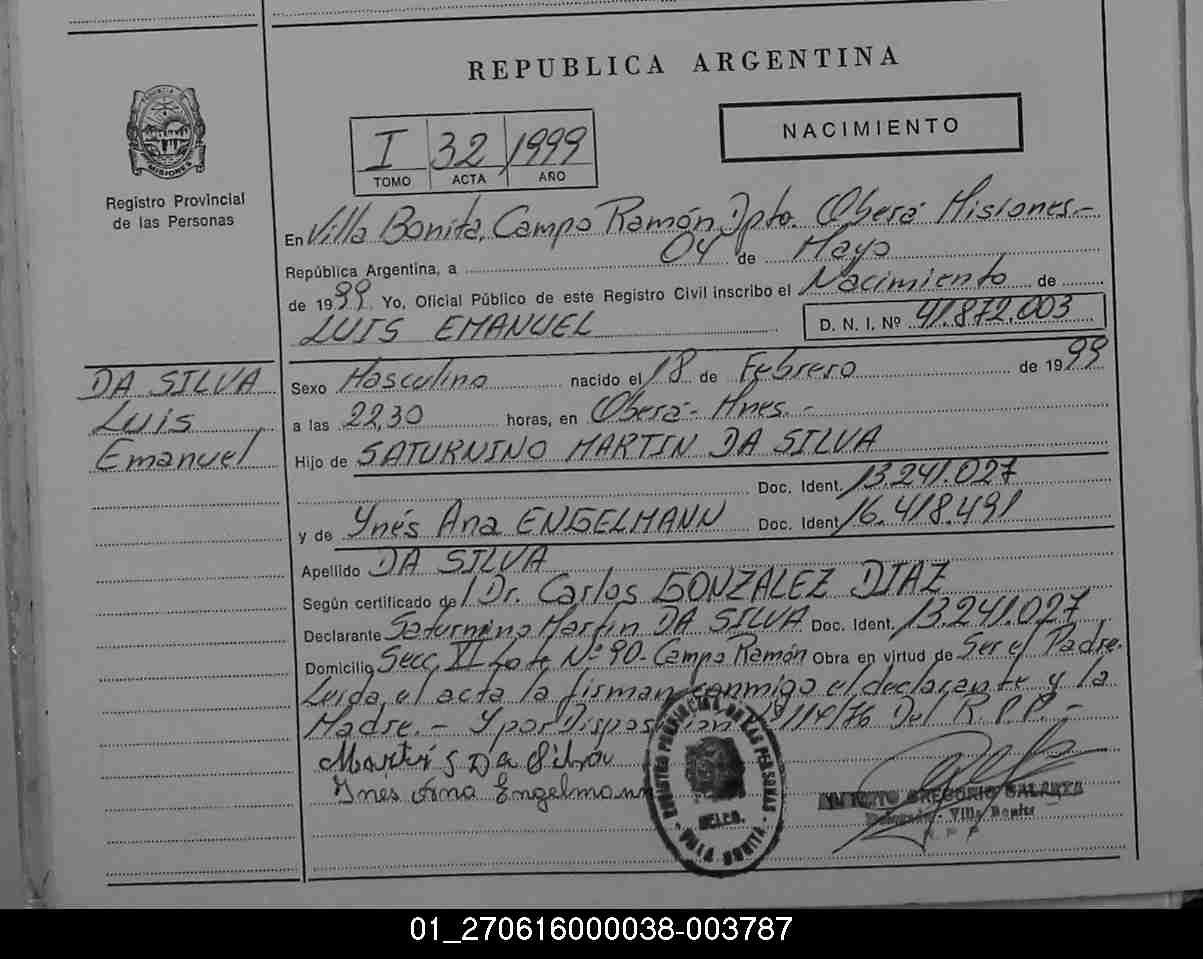 REPUBLICA ARGENTINA
MISIONES
Registro Provincial
de las Personas
I 32 1999
TOMO ACTA AÑO
NACIMIENTO
En Villa Bonita, Campo Ramón Dpto. Oberá Misiones.-
República Argentina, a 04 de Mayo
de 1999. Yo, Oficial Público de este Registro Civil inscribo el Nacimiento de
LUIS EMANUEL D. N. I. Nº 41.872.003
DA SILVA
Luis
Emanuel
Sexo Masculino nacido el 18 de Febrero de 1999
a las 22,30 horas, en Oberá- Mnes.-
Hijo de SATURNINO MARTIN DA SILVA
Doc. Ident. 13.241.027
y de Ynés Ana ENGELMANN Doc. Ident. 16.418.491
Apellido DA SILVA
Según certificado de l Dr. Carlos GONZALEZ DIAZ
Declarante Saturnino Martin DA SILVA Doc. Ident. 13.241.027
Domicilio Secc. VI Lote Nº 90- Campo Ramón Obra en virtud de Ser el Padre.
Leida el acta la firman conmigo el declarante y la
Madre.- Y por Disposición 114/76 Del R.P.P.-
Martin S Da Silva
Ines Ana Engelmann
REGISTRO PROVINCIAL DE LAS PERSONAS
DELEG.
- VILLA BONITA -
GREGORIO GALARZA
Delegado - Villa Bonita
R. P. P.
01_270616000038-003787